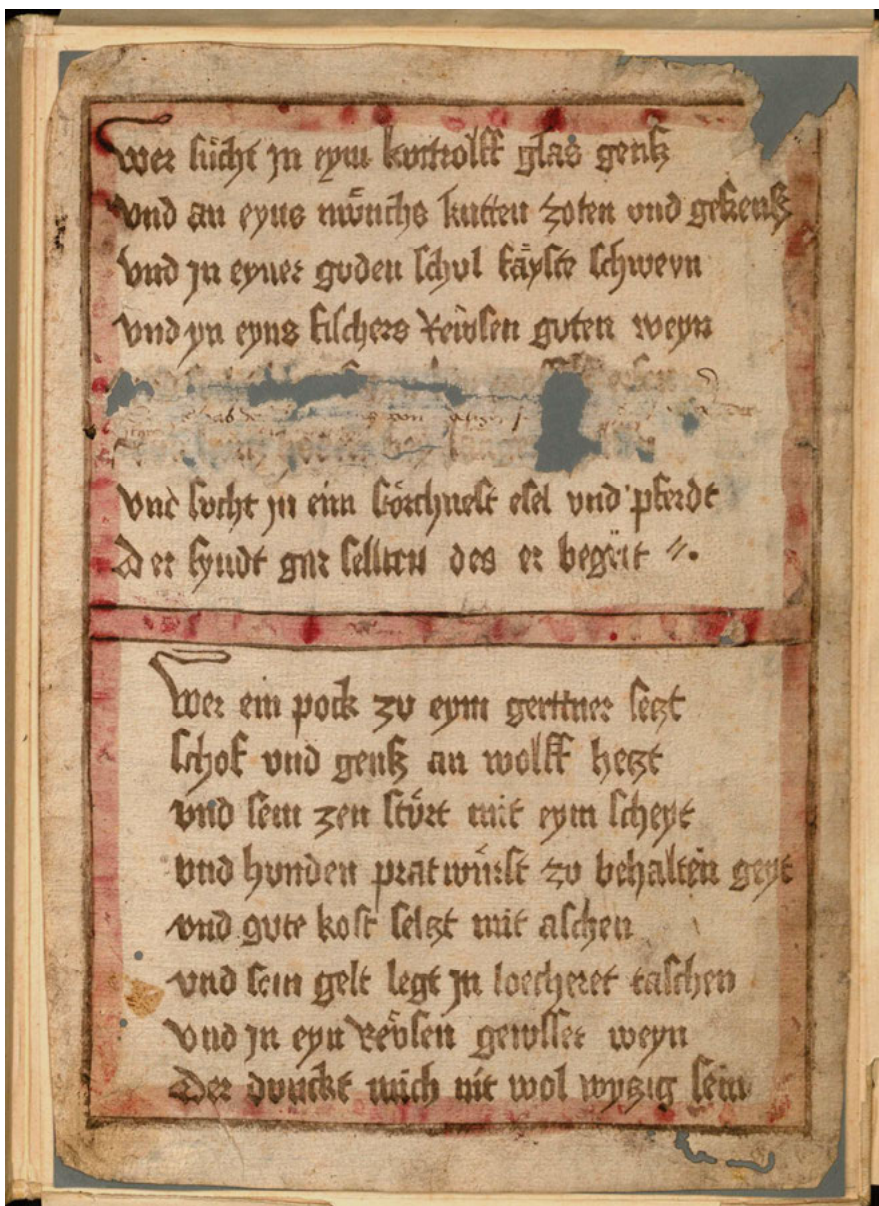 Wer sücht jn eym kuttrolff glas genß
Vnd an eyns mönchs kutten zoten vnd gefrenß
Vnd jn eyner guden schul fäyste schweyn
Vnd yn eyns fischers Reiwsen guten weyn
Vnd sucht jn eim störchnest esel vnd pferdt
Der fyndt gar sellten des er begert
Wer ein pock zu eym gerttner setzt
schof vnd genß an wolff hetzt
vnd sein zen stürt mit eym scheyt
vnd hunden pratwürst zu behalten geyt
vnd gute kost seltzt mit aschen
vnd sein gelt legt jn loecheret taschen
Vnd jn eyn Reüsen gewsset weyn
Der dunckt mich nit wol wytzig sein